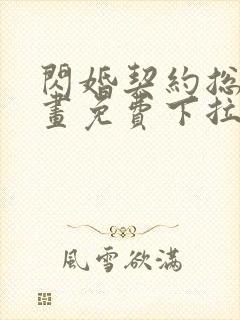 閃婚契約総
畫免費下拉
風雪欲滿